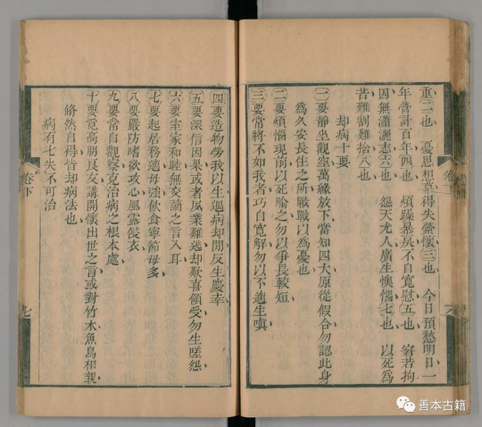 重二也　憂思想慕得失縈懷三也　今日預愁明日一
年營計百年四也　煩躁暴戾不自寬慰五也　窘若拘
囚無瀟灑志六也　怨天尤人廣生懊惱七也　以死爲
苦難割難捨八也
却病十要
一要靜坐觀空萬緣放下當知四大原從假合勿認此身
爲久安長住之所戰戰以爲憂也
二要煩惱現前以死喻之勿以爭長較短
三要常將不如我者巧自寬解勿以不適生嗔
四要造物勞我以生遇病却閒反生慶幸
五要深信因果或者夙業難逃却歡喜領受勿生嗟怨
六要室家和睦無交謫之言入耳
七要起居務適毋強飲食寧節毋多
八要嚴防嗜欲攻心風露侵衣
九要常自觀察克治病之根本處
十要覓高朋良友講開懷出世之言或對竹木魚鳥相親
翛然自得皆却病法也
病有七失不可治
卷下
善本古籍